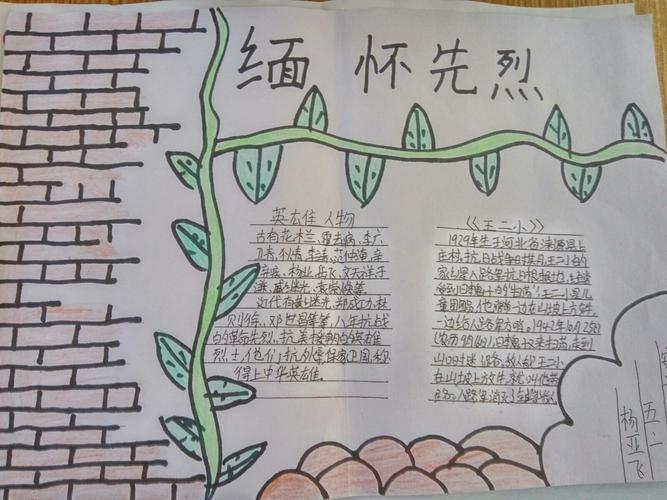 缅怀先烈
英杰佳人物
古有花木兰、霍去病、李广、
卫青、狄青、李靖、范仲淹、辛
弃疾、杨业、岳飞、文天祥于
谦、戚继光、袁崇焕等
近代有戚继光、郑成功、林
则徐、邓世昌等等八年抗战
的革命先烈、抗美援朝的英雄
烈士,他们抗外掌保家卫国,称
得上中华英雄。
《王二小》
1929年生于河北省涞源县上
庄村,抗日战争时期王二小的
家乡是八路军抗日根据地,经常
受到日本鬼子的"扫荡",王二小是儿
童团员,他常常一边在山坡上放牛,
一边给八路军放哨。1942年10月25日
(农历9月16日)日本鬼子来扫荡,走到
山口时迷了路,敌人看见王二小
在山坡上放牛,就叫他带
路。八路军消灭了全部敌人
五.二
杨亚飞